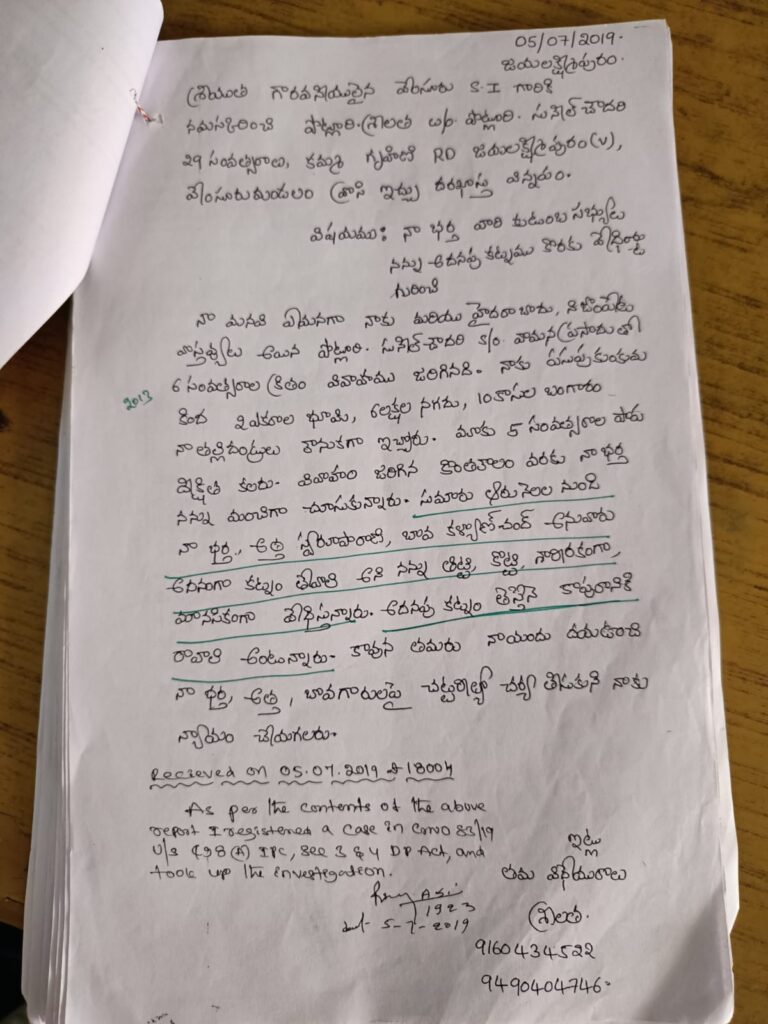 05/07/2019.
జయలక్ష్మీపురం.
శ్రీయుత గౌరవనీయులైన వేంసూరు S.I గారికి
నమస్కరించి పొట్లూరి. శ్రీలత w/o పొట్లూరి. సునీల్ చౌదరి
29 సంవత్సరాలు, కమ్మ గృహిణి RD జయలక్ష్మీపురం (v),
వేంసూరు మండలం వ్రాసి ఇచ్చు దరఖాస్తు విన్నపం.
విషయము: నా భర్త వారి కుటుంబ సభ్యులు
నన్ను అదనపు కట్నము కొరకు వేధింపు
గురించి
నా మనవి ఏమనగా నాకు మరియు హైదరాబాదు, నిజాంపేట
వాస్తవ్యులు అయిన పొట్లూరి. సునీల్ చౌదరి s/o వామన ప్రసాదు తో
2013 6 సంవత్సరాల క్రితం వివాహము జరిగినది. నాకు పసుపుకుంకుమ
కింద 2 ఎకరాల భూమి, 6 లక్షల నగదు, 10 కాసుల బంగారం
నా తల్లిదండ్రులు కానుకగా ఇచ్చారు. మాకు 5 సంవత్సరాల పాప
దీక్షిత కలదు. వివాహం జరిగిన కొంతకాలం వరకు నా భర్త
నన్ను మంచిగా చూసుకున్నారు. సుమారు ఆరు నెలల నుండి
నా భర్త, అత్త స్వరూపారాణి, బావ కళ్యాణ్ చంద్ అనువారు
అదనంగా కట్నం తేవాలి అని నన్ను తిట్టి, కొట్టి, శారీరకంగా,
మానసికంగా వేధిస్తున్నారు. అదనపు కట్నం తెస్తేనే కాపురానికి
రావాలి అంటున్నారు. కావున తమరు నాయందు దయఉంచి
నా భర్త, అత్త, బావగారులపై చట్టరీత్యా చర్య తీసుకుని నాకు
న్యాయం చేయగలరు.
Recieved on 05.07.2019 at 1800H
As per the contents of the above
report I registered a case in CrNO 83/19
U/s 498(A) IPC, Sec 3 & 4 DP Act, and
took up the investegation.
ASI
1923
5-7-2019
ఇట్లు
తమ విధేయురాలు
శ్రీలత.
9160434522
9490404746.